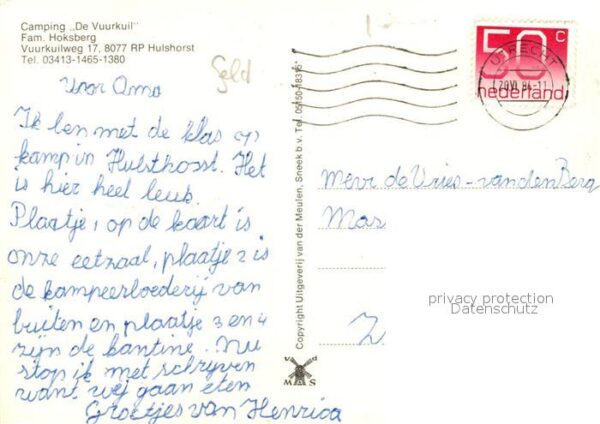 Camping „De Vuurkuil"
Fam. Hoksberg
Vuurkuilweg 17, 8077 RP Hulshorst
Tel. 03413-1465-1380
Geld
Voor Oma
Ik ben met de klas op
kamp in Hulsthorst. Het
is hier heel leuk.
Plaatje 1 op de kaart is
onze eetzaal, plaatje 2 is
de kampeerboederij van
buiten en plaatje 3 en 4
zijn de kantine. Nu
stop ik met schrijven
want wij gaan eten
Groetjes van Henrica
Copyright Uitgeverij van der Meulen, Sneek b.v. Tel. 05150-18315*
v d
MAS
50 c
nederland
UTRECHT
Mevr de Vries-van den Berg
privacy protection
Datenschutz